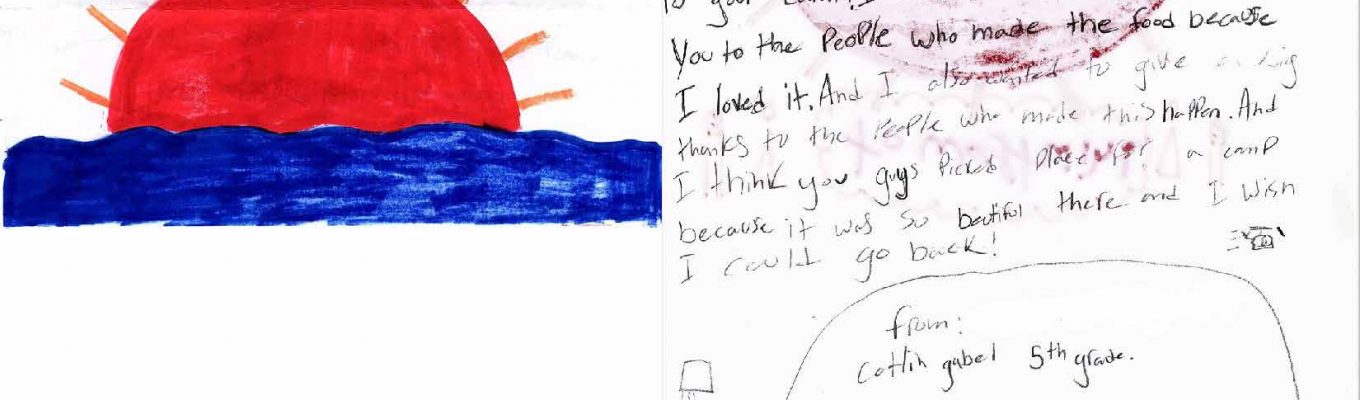 to your
You to the People who made the food because
I loved it. And I also wanted to give a big
thanks to the People who made this happen. And
I think you guys Picked Place for a camp
because it was so beutiful there and I wish
I could go back!
from:
Catlin gabel 5th grade.